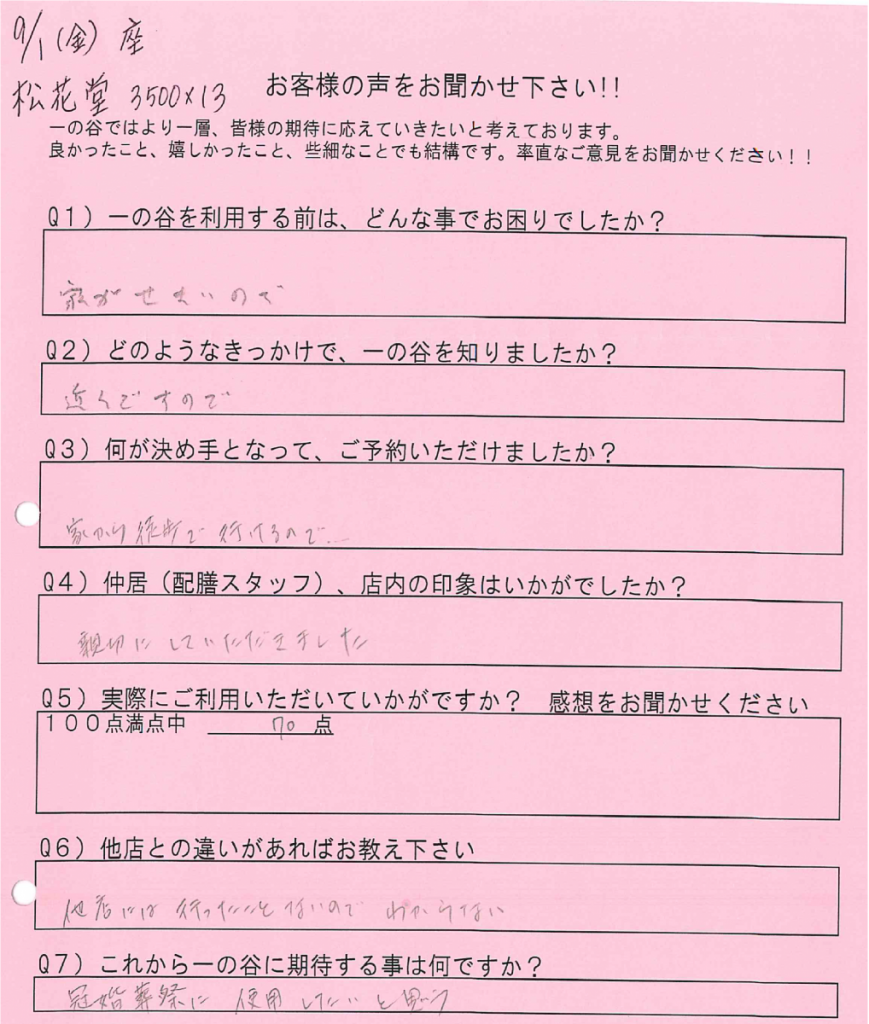 9/1(金) 座
松花堂 3500×13
お客様の声をお聞かせ下さい!!
一の谷ではより一層、皆様の期待に応えていきたいと考えております。
良かったこと、嬉しかったこと、些細なことでも結構です。率直なご意見をお聞かせください!!
Q1)一の谷を利用する前は、どんな事でお困りでしたか?
家がせまいので
Q2)どのようなきっかけで、一の谷を知りましたか?
近くですので
Q3)何が決め手となって、ご予約いただけましたか?
家から徒歩で行けるので…
Q4)仲居(配膳スタッフ)、店内の印象はいかがでしたか?
親切にしていただきました
Q5)実際にご利用いただいていかがですか? 感想をお聞かせください
100点満点中 70 点
Q6)他店との違いがあればお教え下さい
他店には行ったことないのでわからない
Q7)これから一の谷に期待する事は何ですか?
冠婚葬祭に使用したいと思う